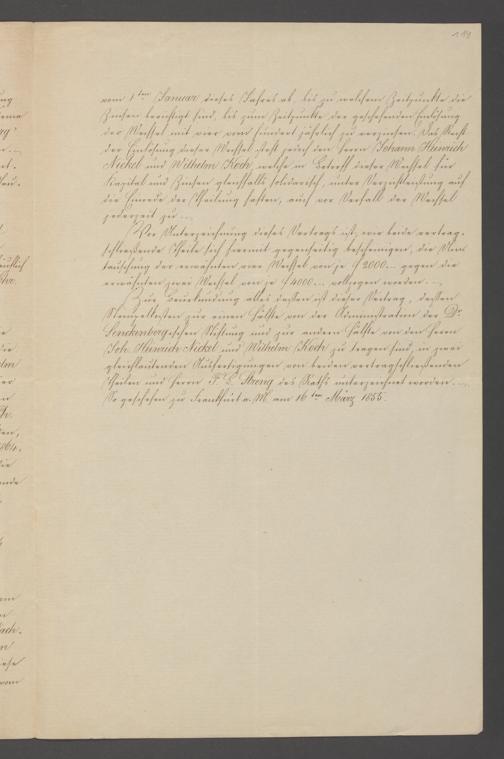 189
vom 1ten Januar dieses Jahres ab, bis zu welchem Zeitpunkte die
Zinsen berichtigt sind, bis zum Zeitpunkte der geschehenden Einlösung
der Wechsel mit vier vom hundert jährlich zu verzinsen. Das Recht
der Einlösung dieser Wechsel steht jedoch den Herrn Johann Heinrich
Nickel und Wilhelm Koch, welche in Betreff dieser Wechsel für
Kapital und Zinsen gleichfalls solidarisch, unter Verzichtleistung auf
die Einrede der Theilung haften, auch vor Verfall der Wechsel
jederzeit zu.
Vor Unterzeichnung dieses Vertrags ist, wie beide vertrag-
schließende Theile sich hiermit gegenseitig bescheinigen, die Um-
tauschung der erwähnten vier Wechsel von je f 2000 gegen die
erwähnten zwei Wechsel von je f 4000 vollzogen worden.
Zur Beurkundung alles dessen ist dieser Vertrag, dessen
Stempelkosten zur einen Hälfte von der Administration der Dr.
Senckenbergischen Stiftung und zur andern Hälfte von den Herrn
Joh. Heinrich Nickel und Wilhelm Koch zu tragen sind, in zwei
gleichlautenden Ausfertigungen von beiden vertragschließenden
Theilen und Herrn F. E. Streng des Raths unterzeichnet worden.
So geschehen zu Frankfurt a. M. am 16ten März 1855.